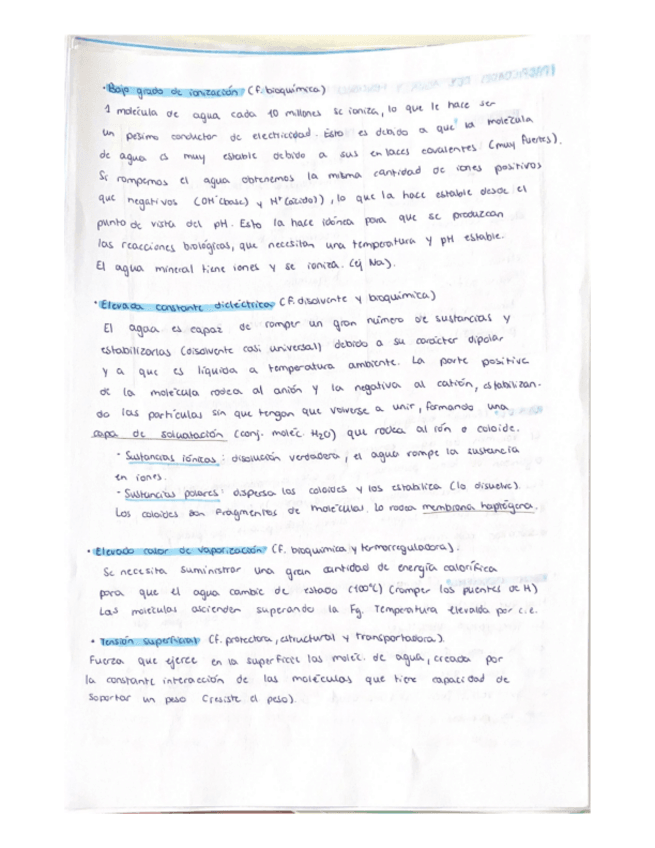 · Bajo grado de ionización (f. bioquímica)
1 molécula de agua cada 10 millones se ioniza, lo que le hace ser
un pésimo conductor de electricidad. Esto es debido a que la molécula
de agua es muy estable debido a sus enlaces covalentes (muy fuertes).
Si rompemos el agua obtenemos la misma cantidad de iones positivos
que negativos (OH⁻(base) y H⁺(ácido)), lo que la hace estable desde el
punto de vista del pH. Esto la hace idónea para que se produzcan
las reacciones biológicas, que necesitan una temperatura y pH estable.
El agua mineral tiene iones y se ioniza. (ej Na).
· Elevada constante dieléctrica (f. disolvente y bioquímica)
El agua es capaz de romper un gran número de sustancias y
estabilizarlas (disolvente casi universal) debido a su carácter dipolar
y a que es líquida a temperatura ambiente. La parte positiva
de la molécula rodea al anión y la negativa al catión, estabilizan-
do las partículas sin que tengan que volverse a unir, formando una
capa de solvatación (conj. moléc. H₂O) que rodea al ión o coloide.
· Sustancias iónicas: disolución verdadera, el agua rompe la sustancia
en iones.
· Sustancias polares: dispersa los coloides y los estabiliza (lo disuelve).
Los coloides son fragmentos de moléculas. Lo rodea membrana haptógena.
· Elevado calor de vaporización (f. bioquímica y termorreguladora).
Se necesita suministrar una gran cantidad de energía calorífica
para que el agua cambie de estado (100ºC) (romper los puentes de H)
Las moléculas ascienden superando la Fg. Temperatura elevada por c.e.
· Tensión superficial (f. protectora, estructural y transportadora).
Fuerza que ejerce en la superficie las moléc. de agua, creada por
la constante interacción de las moléculas que tiene capacidad de
soportar un peso (resiste el peso).